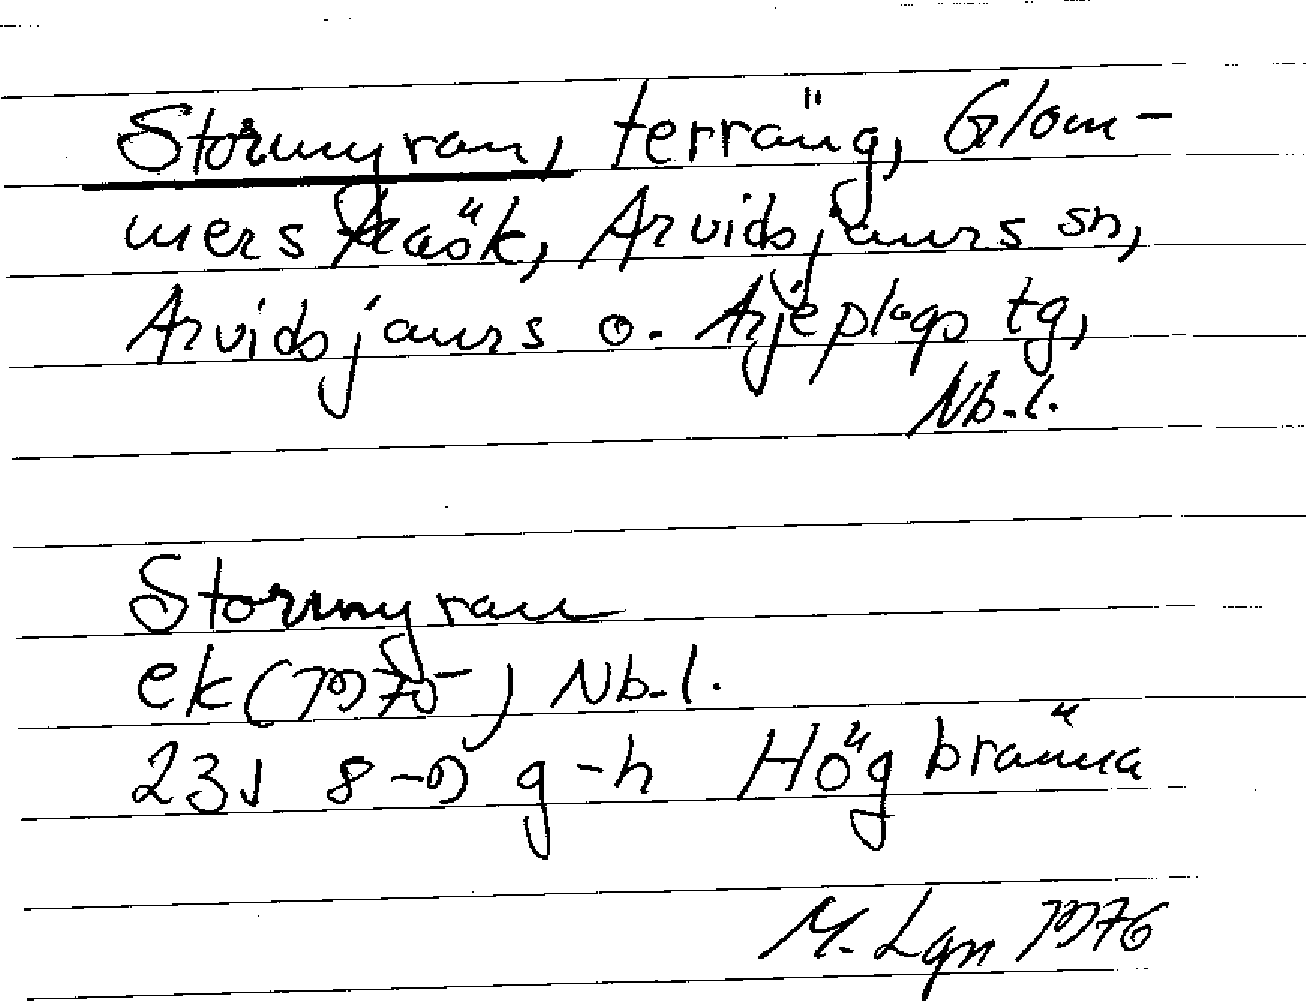 Stormyran, terräng, Glom-
mersträsk, Arvidsjaurs sn,
Arvidsjaurs o. Arjeplogs tg,
Nb. l.
Stormyran
ek (1975) Nb. l.
23J 8-9 g-h Högbränna
M. Lgn 1976